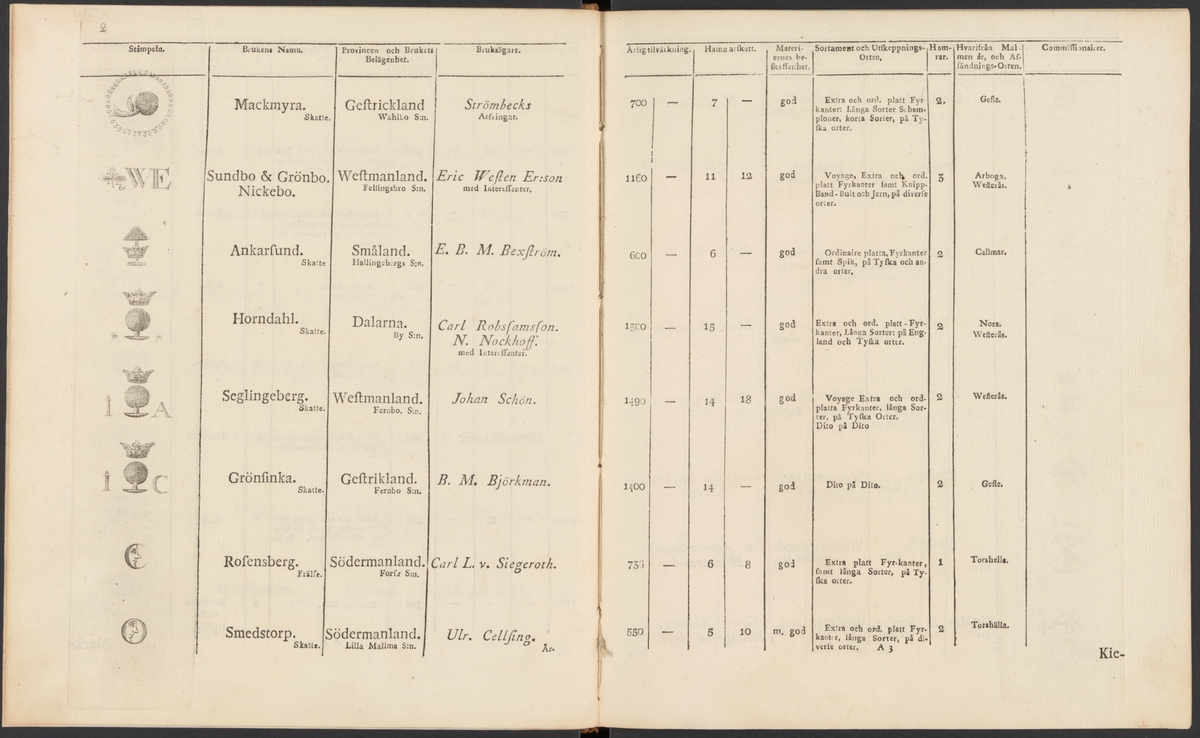 2
Stämpeln. Brukens Namn. Provincen och Brukets Belägenhet. Bruksägare. Årlig tilvärkning. Hamnarskatt. Materiernes beskaffenhet. Sortament och Utskeppnings-Orten. Hamrar. Hvarifrån Malmen är, och Afsändnings-Orten. Commissionairer.
Mackmyra. Geſtrickland Strömbecks 700 — 7 — god Extra och ord. platt Fyr- 2. Gefle.
Skatte. Wahlbo S:n. Arfvingar. kanter: Långa Sorter Scham-
ploner, korta Sorter, på Ty-
ſka orter.
WE Sundbo & Grönbo. Weſtmanland. Eric Weſten Er:son 1160 — 11 12 god Voyage, Extra och ord. 3 Arboga.
Nickebo. Fellingsbro S:n. med Intereſſenter. platt Fyrkanter ſamt Knipp- Weſterås.
Band-Bult och Jern, på diverſe
orter.
Ankarſund. Småland. E. B. M. Bexſtröm. 600 — 6 — god Ordinaire platta, Fyrkanter 2 Callmar.
Skatte Hallingebergs S:n. ſamt Spik, på Tyſka och an-
dra orter.
Horndahl. Dalarna. Carl Robsſamsſon. 1500 — 15 — god Extra och ord. platt-Fyr- 2 Nora.
Skatte. By S:n. N. Nockhoff. kanter, Långa Sorter: på Eng- Weſterås.
med Intereſſenter. land och Tyſka orter.
I A Seglingeberg. Weſtmanland. Johan Schön. 1490 — 14 18 god Voyage Extra och ord- 2 Weſterås.
Skatte. Fernbo. S:n. platta Fyrkanter, långa Sor-
ter, på Tyſka Orter.
Dito på Dito
I C Grönſinka. Geſtrikland. B. M. Björkman. 1400 — 14 — god Dito på Dito. 2 Gefle.
Skatte. Fernbo S:n.
Roſensberg. Södermanland. Carl L. v. Siegeroth. — 6 8 god Extra platt Fyr-kanter, 1 Torshella.
Frälſe. Forſs S:n. ſamt långa Sorter, på Ty-
ſka orter.
Smedstorp. Södermanland. Ulr. Cellſing. 550 — 5 10 m. god Extra och ord. platt Fyr- 2 Torshälla.
Skatte. Lilla Mallma S:n. kanter, långa Sorter, på di-
verſe orter. A 3
År-
Kie-